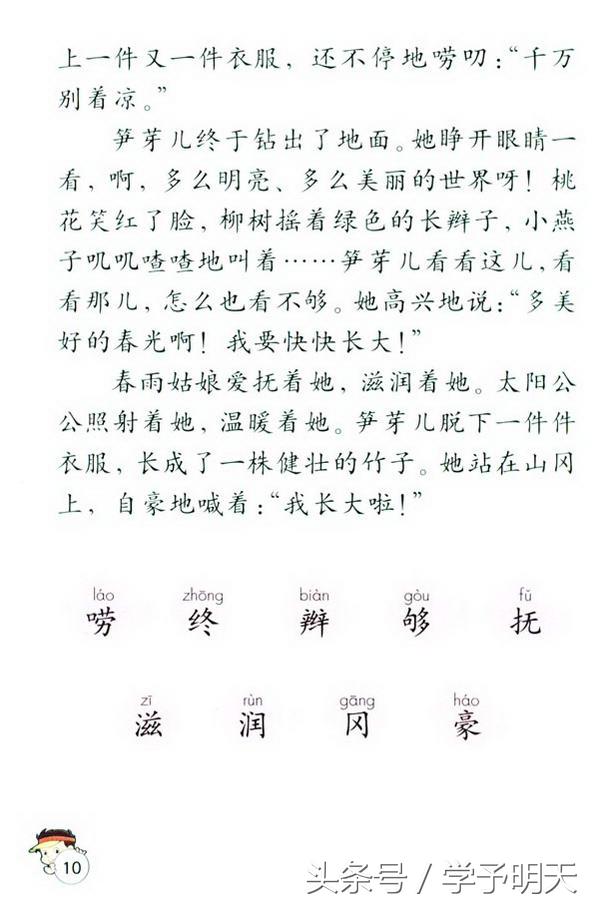 上一件又一件衣服，还不停地唠叨：“千万
别着凉。”
笋芽儿终于钻出了地面。她睁开眼睛一
看，啊，多么明亮、多么美丽的世界呀！桃
花笑红了脸，柳树摇着绿色的长辫子，小燕
子叽叽喳喳地叫着……笋芽儿看看这儿，看
看那儿，怎么也看不够。她高兴地说：“多美
好的春光啊！我要快快长大！”
春雨姑娘爱抚着她，滋润着她。太阳公
公照射着她，温暖着她。笋芽儿脱下一件件
衣服，长成了一株健壮的竹子。她站在山冈
上，自豪地喊着：“我长大啦！”
láo zhōng biàn gòu fǔ
唠 终 辫 够 抚
zī rùn gāng háo
滋 润 冈 豪
10
头条号 / 学予明天